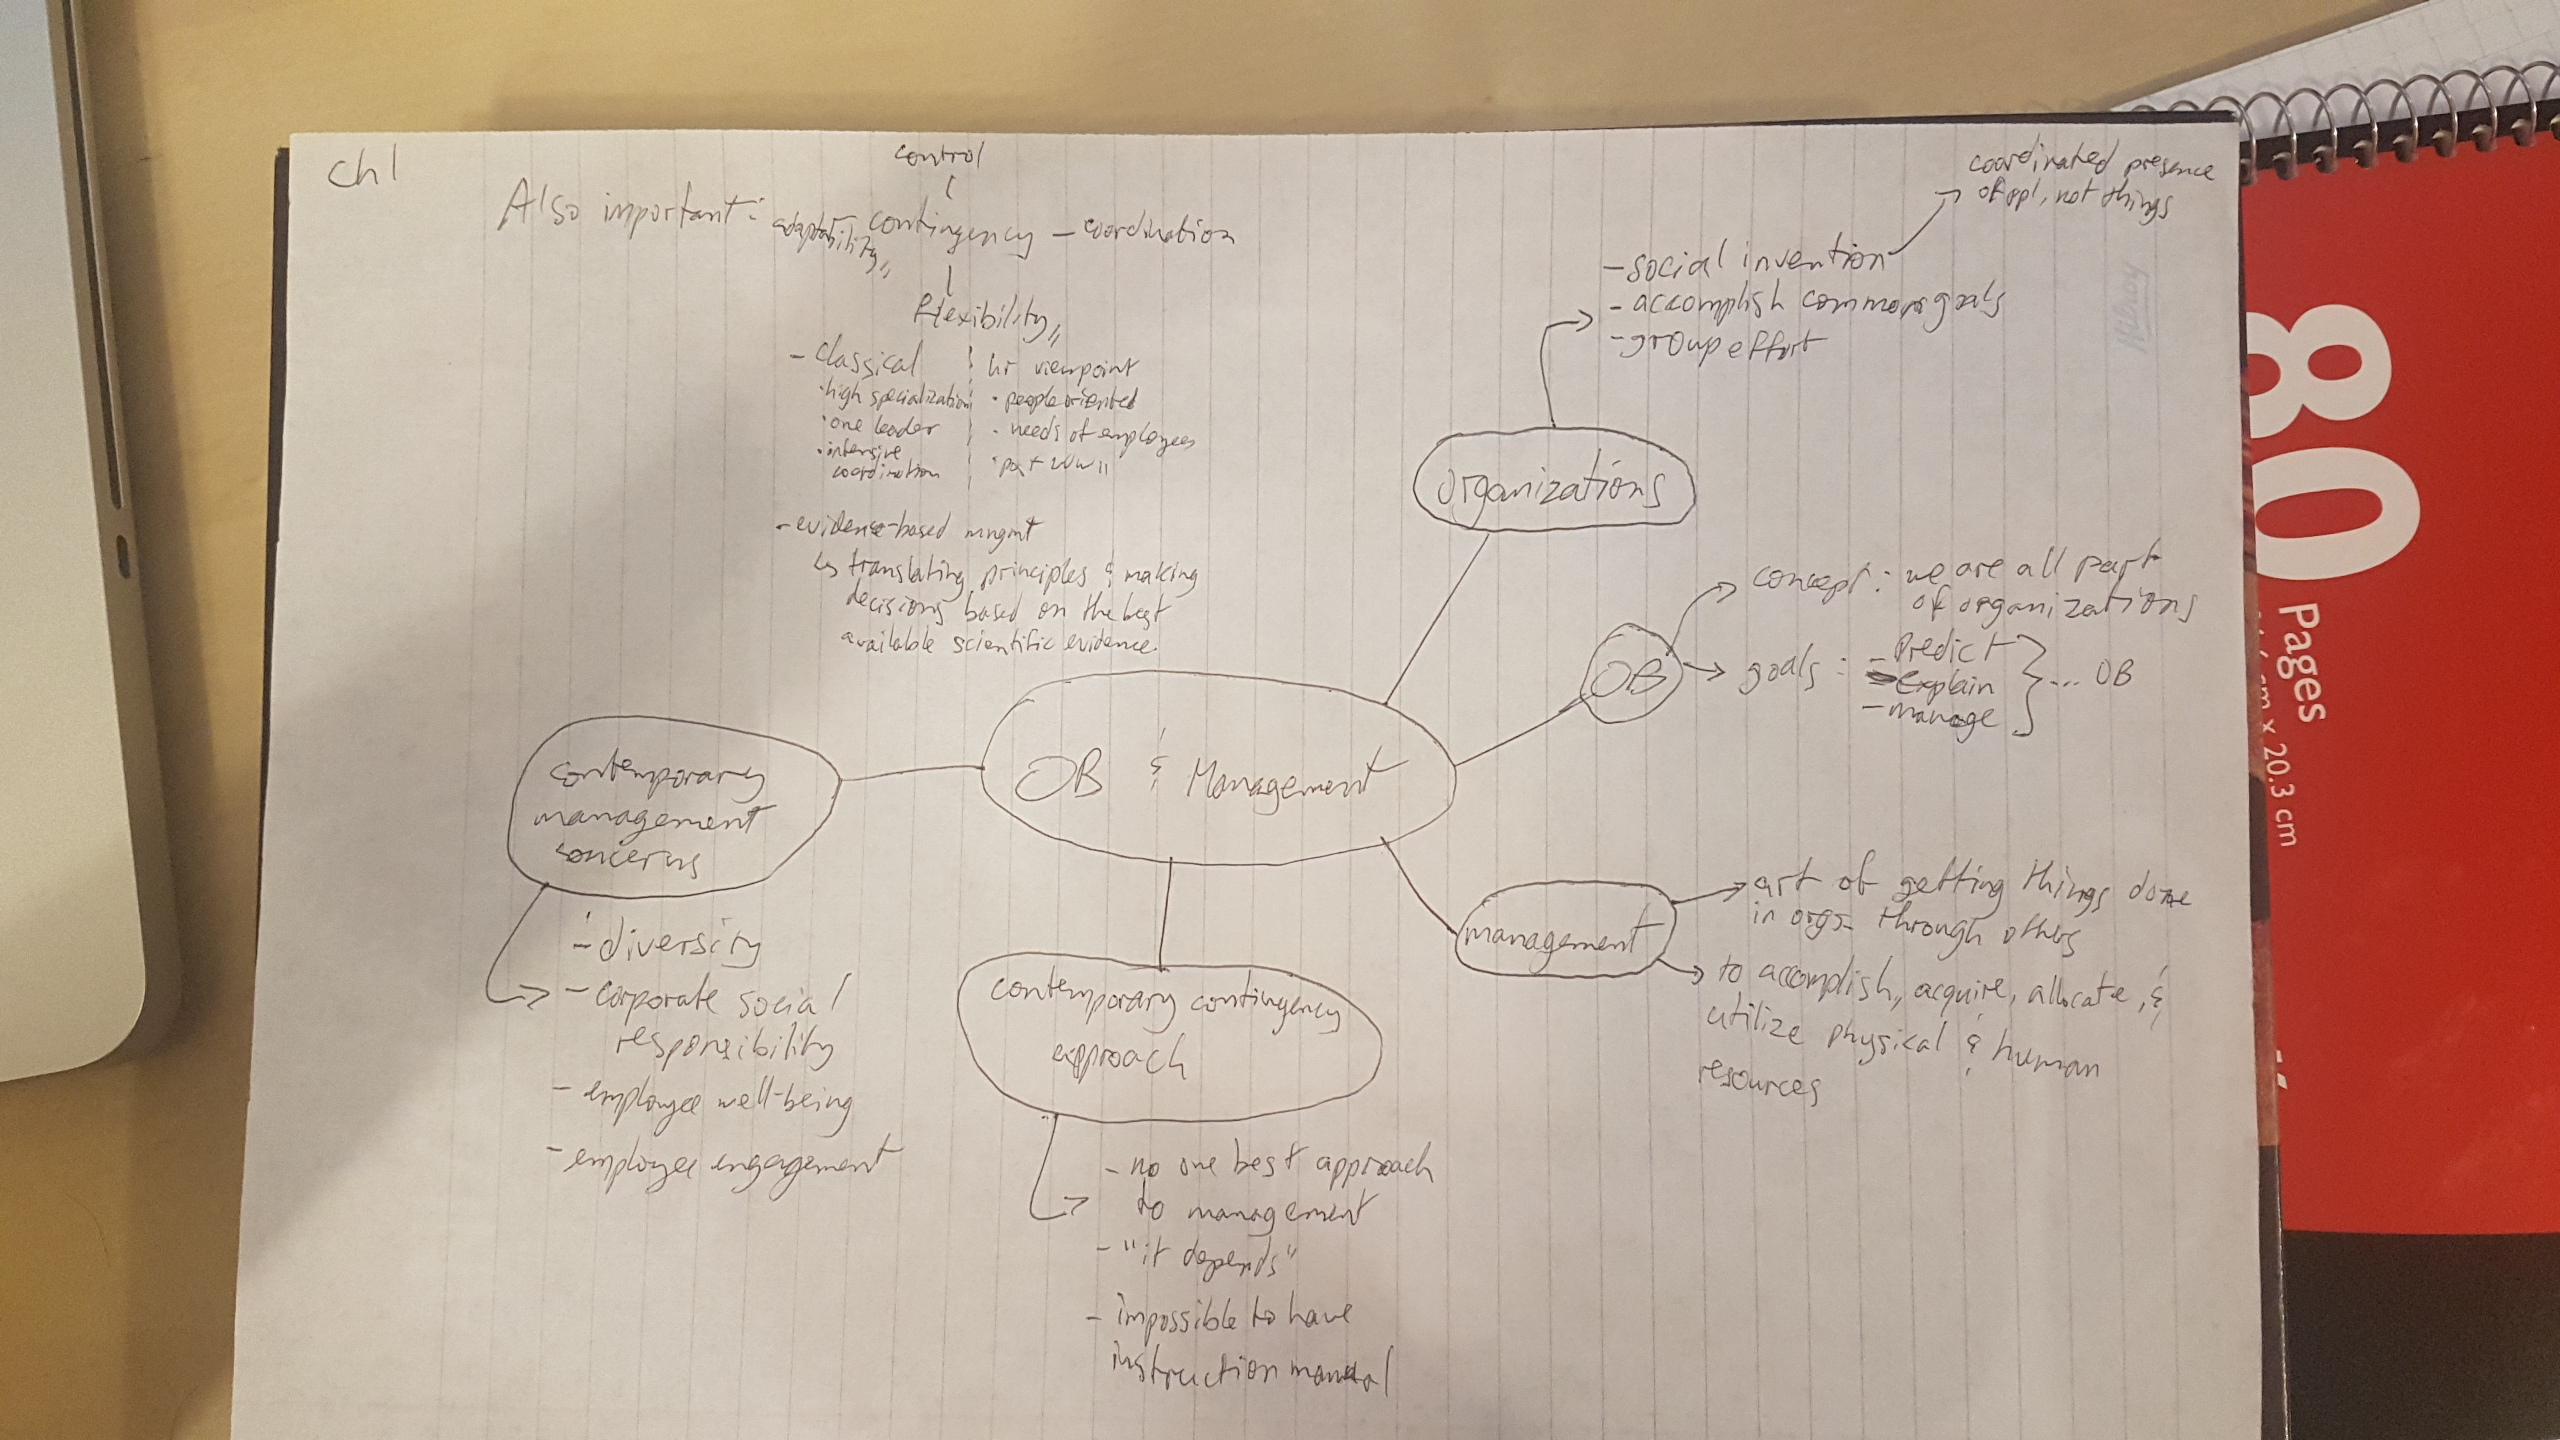 ch1
Also important:
control
adaptability,, contingency – coordination
flexibility,,
- classical
· high specialization
· one leader
· intensive
coordination
hr viewpoint
· people oriented
· needs of employees
· post WWII
- evidence-based mngmt
↳ translating principles & making
decisions based on the best
available scientific evidence.
coordinated presence
of ppl, not things
- social invention
- accomplish common goals
- group effort
organizations
OB
concept: we are all part
of organizations
goals: - Predict
- explain
- manage
... OB
OB & Management
contemporary
management
concerns
- diversity
- corporate social
responsibility
- employee well-being
- employee engagement
contemporary contingency
approach
- no one best approach
to management
- "it depends"
- impossible to have
instruction manual
management
art of getting things done
in orgs. through others
to accomplish, acquire, allocate, &
utilize physical & human
resources
Hilroy
80
Pages
cm x 20.3 cm